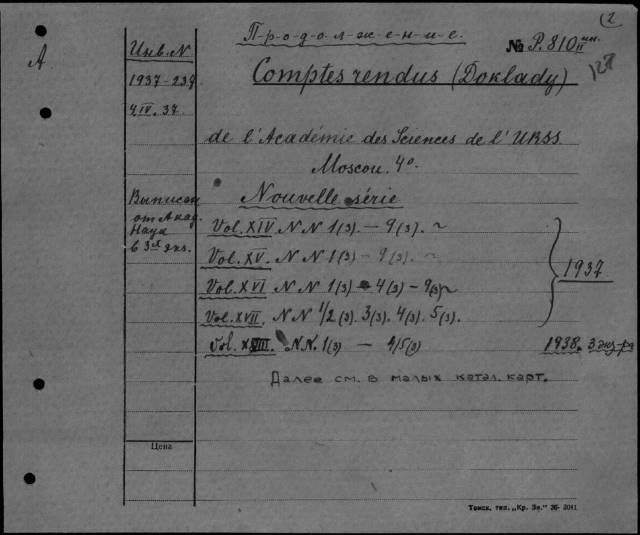 (2
П-р-о-д-о-л-ж-е-н-и-е.
№ Р.810 ин. II
127
А
Инв. N
1937-237
4 IV. 37.
Comptes rendus (Doklady)
de l'Académie des Sciences de l'URSS
Moscou. 4°.
Выписан
от Акад.
Наук
в 3х экз.
Nouvelle série
Vol. XIV. N N 1(3). — 9(3).
Vol. XV. N N 1(3) - 9(3).
Vol. XVI N N 1(3) - 4(3) - 9(3)
Vol. XVII. N N 1/2 (3). 3(3). 4(3). 5(3).
1937
Vol. XVIII. N.N. 1(3) — 4/5(3)
1938. 3 экз-ра
Далее см. в малых катал. карт.
Цена
Томск, тип. „Кр. Зн." 36- 3041